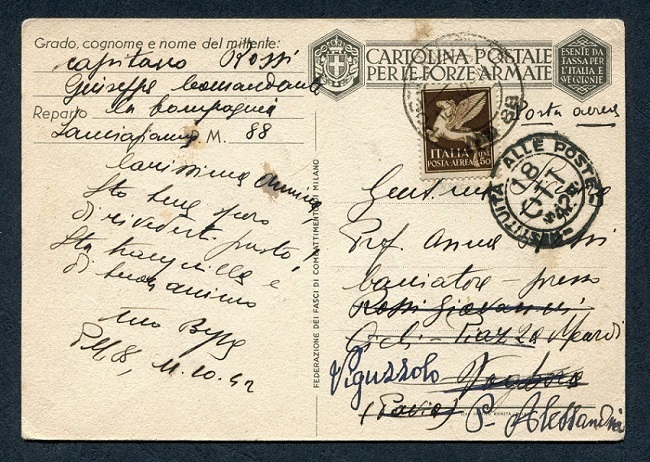 Grado, cognome e nome del mittente:
capitano Rossi
Giuseppe Comandante
la Compagnia
Reparto
Lanciafiamme P.M. 88
CARTOLINA POSTALE
PER LE FORZE ARMATE
ESENTE DA
TASSA PER
L'ITALIA E
SUE COLONIE
Posta aerea
ITALIA
POSTA AEREA
50
ALLE POSTE
18
OTT
42
Carissima Annina,
Sto bene spero
di rivederti presto,
Sta tranquilla e
di buon animo
tuo Beppe
PM 88, 11.10.42
FEDERAZIONE DEI FASCI DI COMBATTIMENTO DI MILANO
Prof. Anna Rossi
Cacciatore - presso
Rossi Giovanni
Piazza Meardi
Viguzzolo Voghera
(Pavia) P. Alessandria